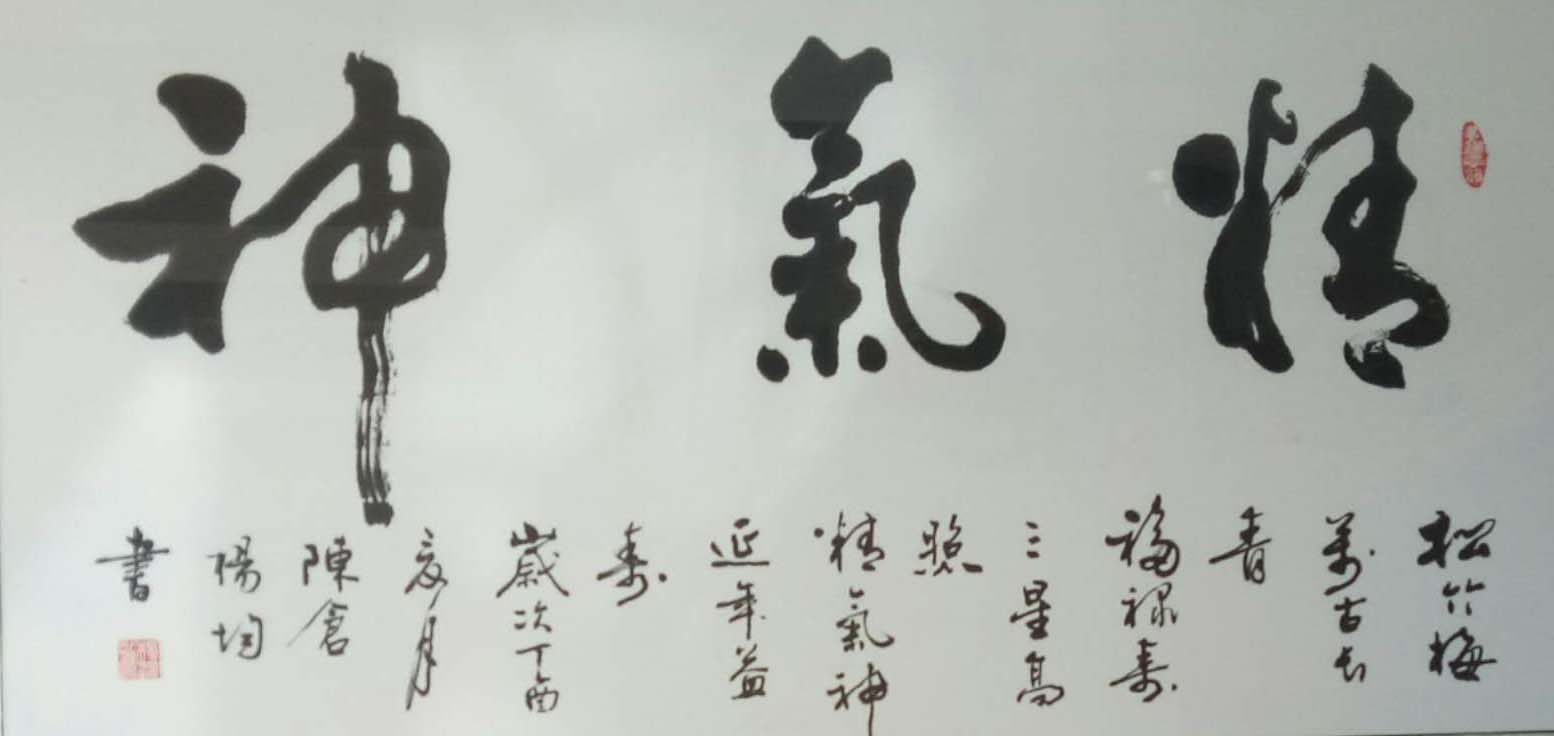 精氣神
松竹梅
萬古長
青
福祿壽
三星高
照
精氣神
延年益
壽
歲次丁酉
夏月
陳倉
楊均
書